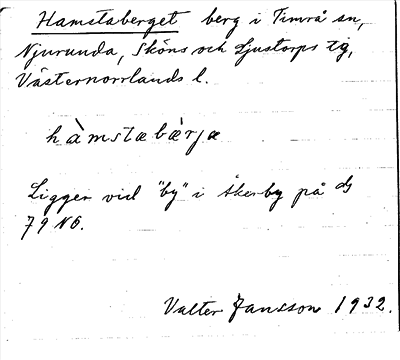 Hamstaberget berg i Timrå sn,
Njurunda, Sköns och Ljustorps tg,
Västernorrlands l.
hàmstabær̀ja
Ligger vid "by" i Åkerby på dj
79 NO.
Valter Jansson 1932.